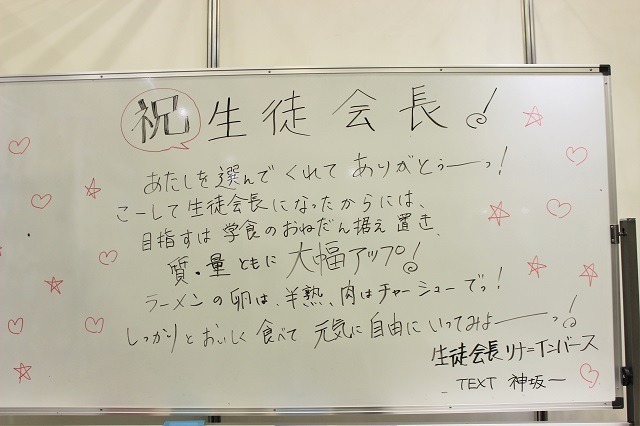 祝生徒会長！
あたしを選んでくれてありがとぅーっ！
こーして生徒会長になったからには、
目指すは学食のおねだん据え置き、
質・量ともに大幅アップ！
ラーメンの卵は、半熟、肉はチャーシューでっ！
しっかりとおいしく食べて元気に自由にいってみよーっ！
生徒会長リナ=インバース
TEXT 神坂一